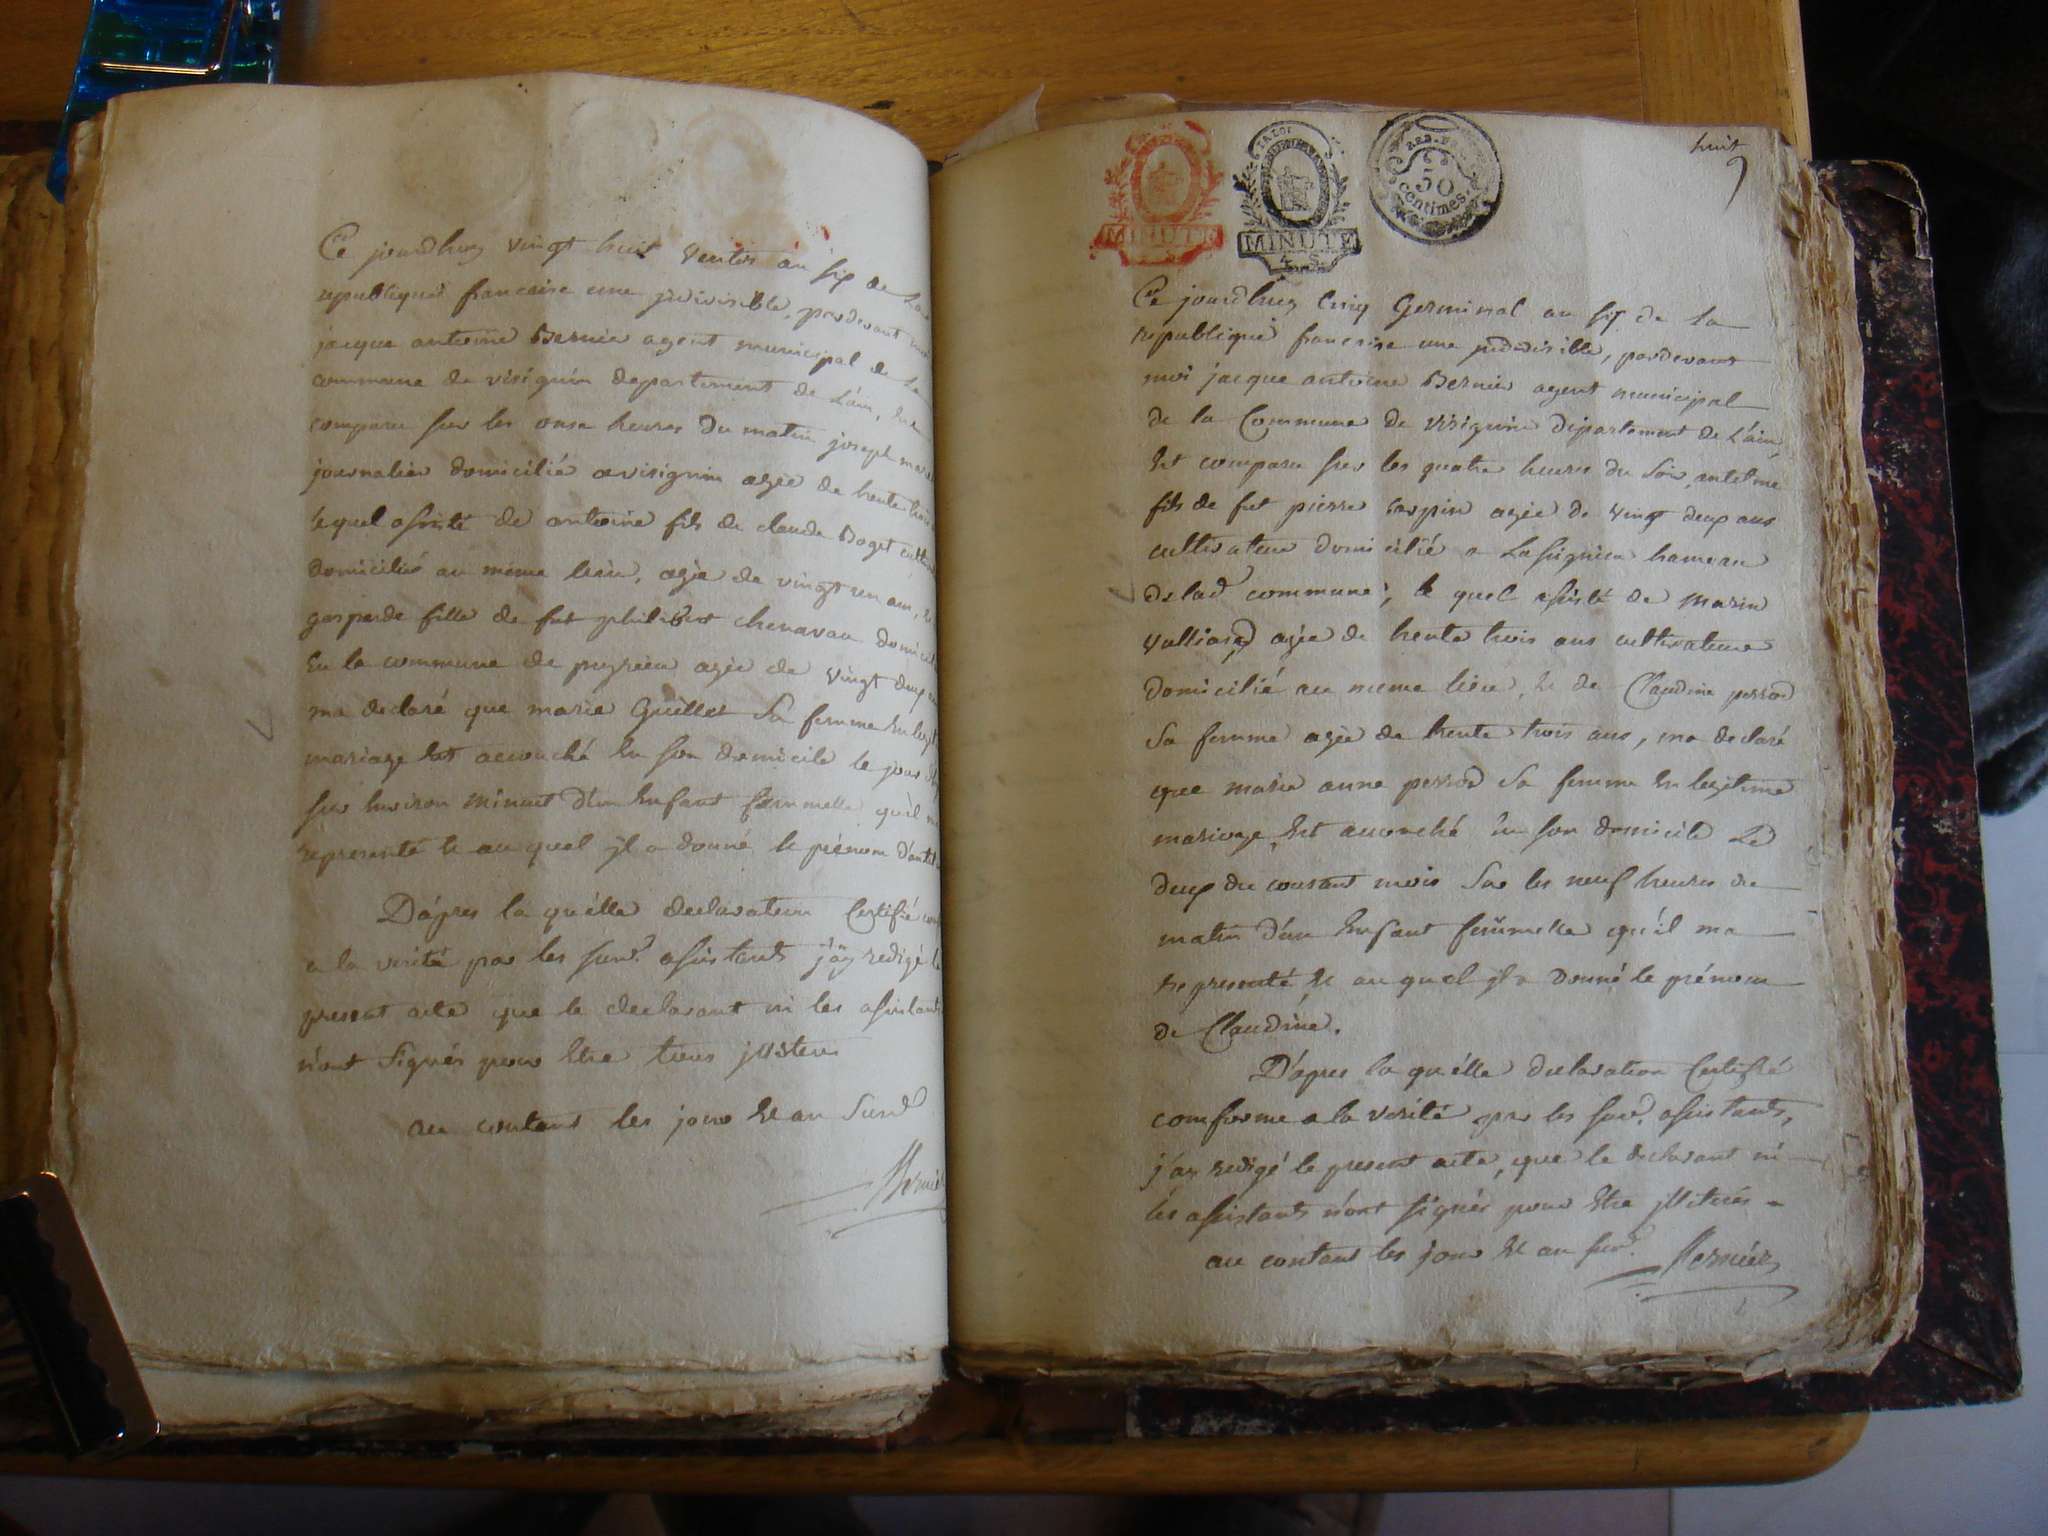 Ce jourdhuy vingt huit ventos an six de la
republique francaise une jndivisible, pardevant moi
jacque antoine Bernier agent municipal de la
commune de visignin departement de L'ain, Est
comparu sur les onse heures du matin joseph
journalier domicilié a visignin agée de trente trois
lequel assisté de antoine fils de claude Boget
domicilié au même lieu, agée de vingt un ans, Et
gasparde fille de fut philibert chenavau
En la commune de pugieu agée de vingt deux
ma declaré que marie Guillet Sa femme En
mariage Est accouché En son domicile le jour
sur Environ Minuit d'un Enfant femmelle qu'il
représenté Et au quel jl a donné le prénom
D'apres la qu'elle declaration Certifié
a la verité par les surd. assistants j'ay redigé le
present acte que le declarant ni les assistants
n'ont Signés pour Etre tous jllitérés
au contant les jour Et an Surd.
Bernier
huit
9
LA LOI
MINUTE
MINUTE
REP. FRA.
50
centimes
Ce jourdhuy Cinq Germinal an six de La
republique francaise une jndivisible, pardevant
moi jacque antoine Bernier agent municipal
de la Commune de Visignin département de L'ain,
Est comparu sur les quatre heures du Soir, antelme
fils de fut pierre Carpin agée de Vingt deux ans
cultivateur domicilié a Lassignieu hameau
de lad. commune, le quel assisté de Marin
Valliard agée de trente trois ans cultivateur
domicilié au meme lieu, Et de Claudine perrod
Sa femme agée de trente trois ans, ma declaré
que marie anne perrod Sa femme En legitime
mariage, Est accouché En son domicile Le
deux du courant mois Sur les neuf heures du
matin d'un Enfant femmelle qu'il ma
representé, Et au quel jl a Donné le prénom
de Claudine.
D'apres la qu'elle declaration Certifié
comforme a la verité par les surd. assistants,
j'ay redigé le present acte, que le declarant ni
les assistants n'ont signés pour Etre jllitérés
au contant les jour Et an surd. Bernier